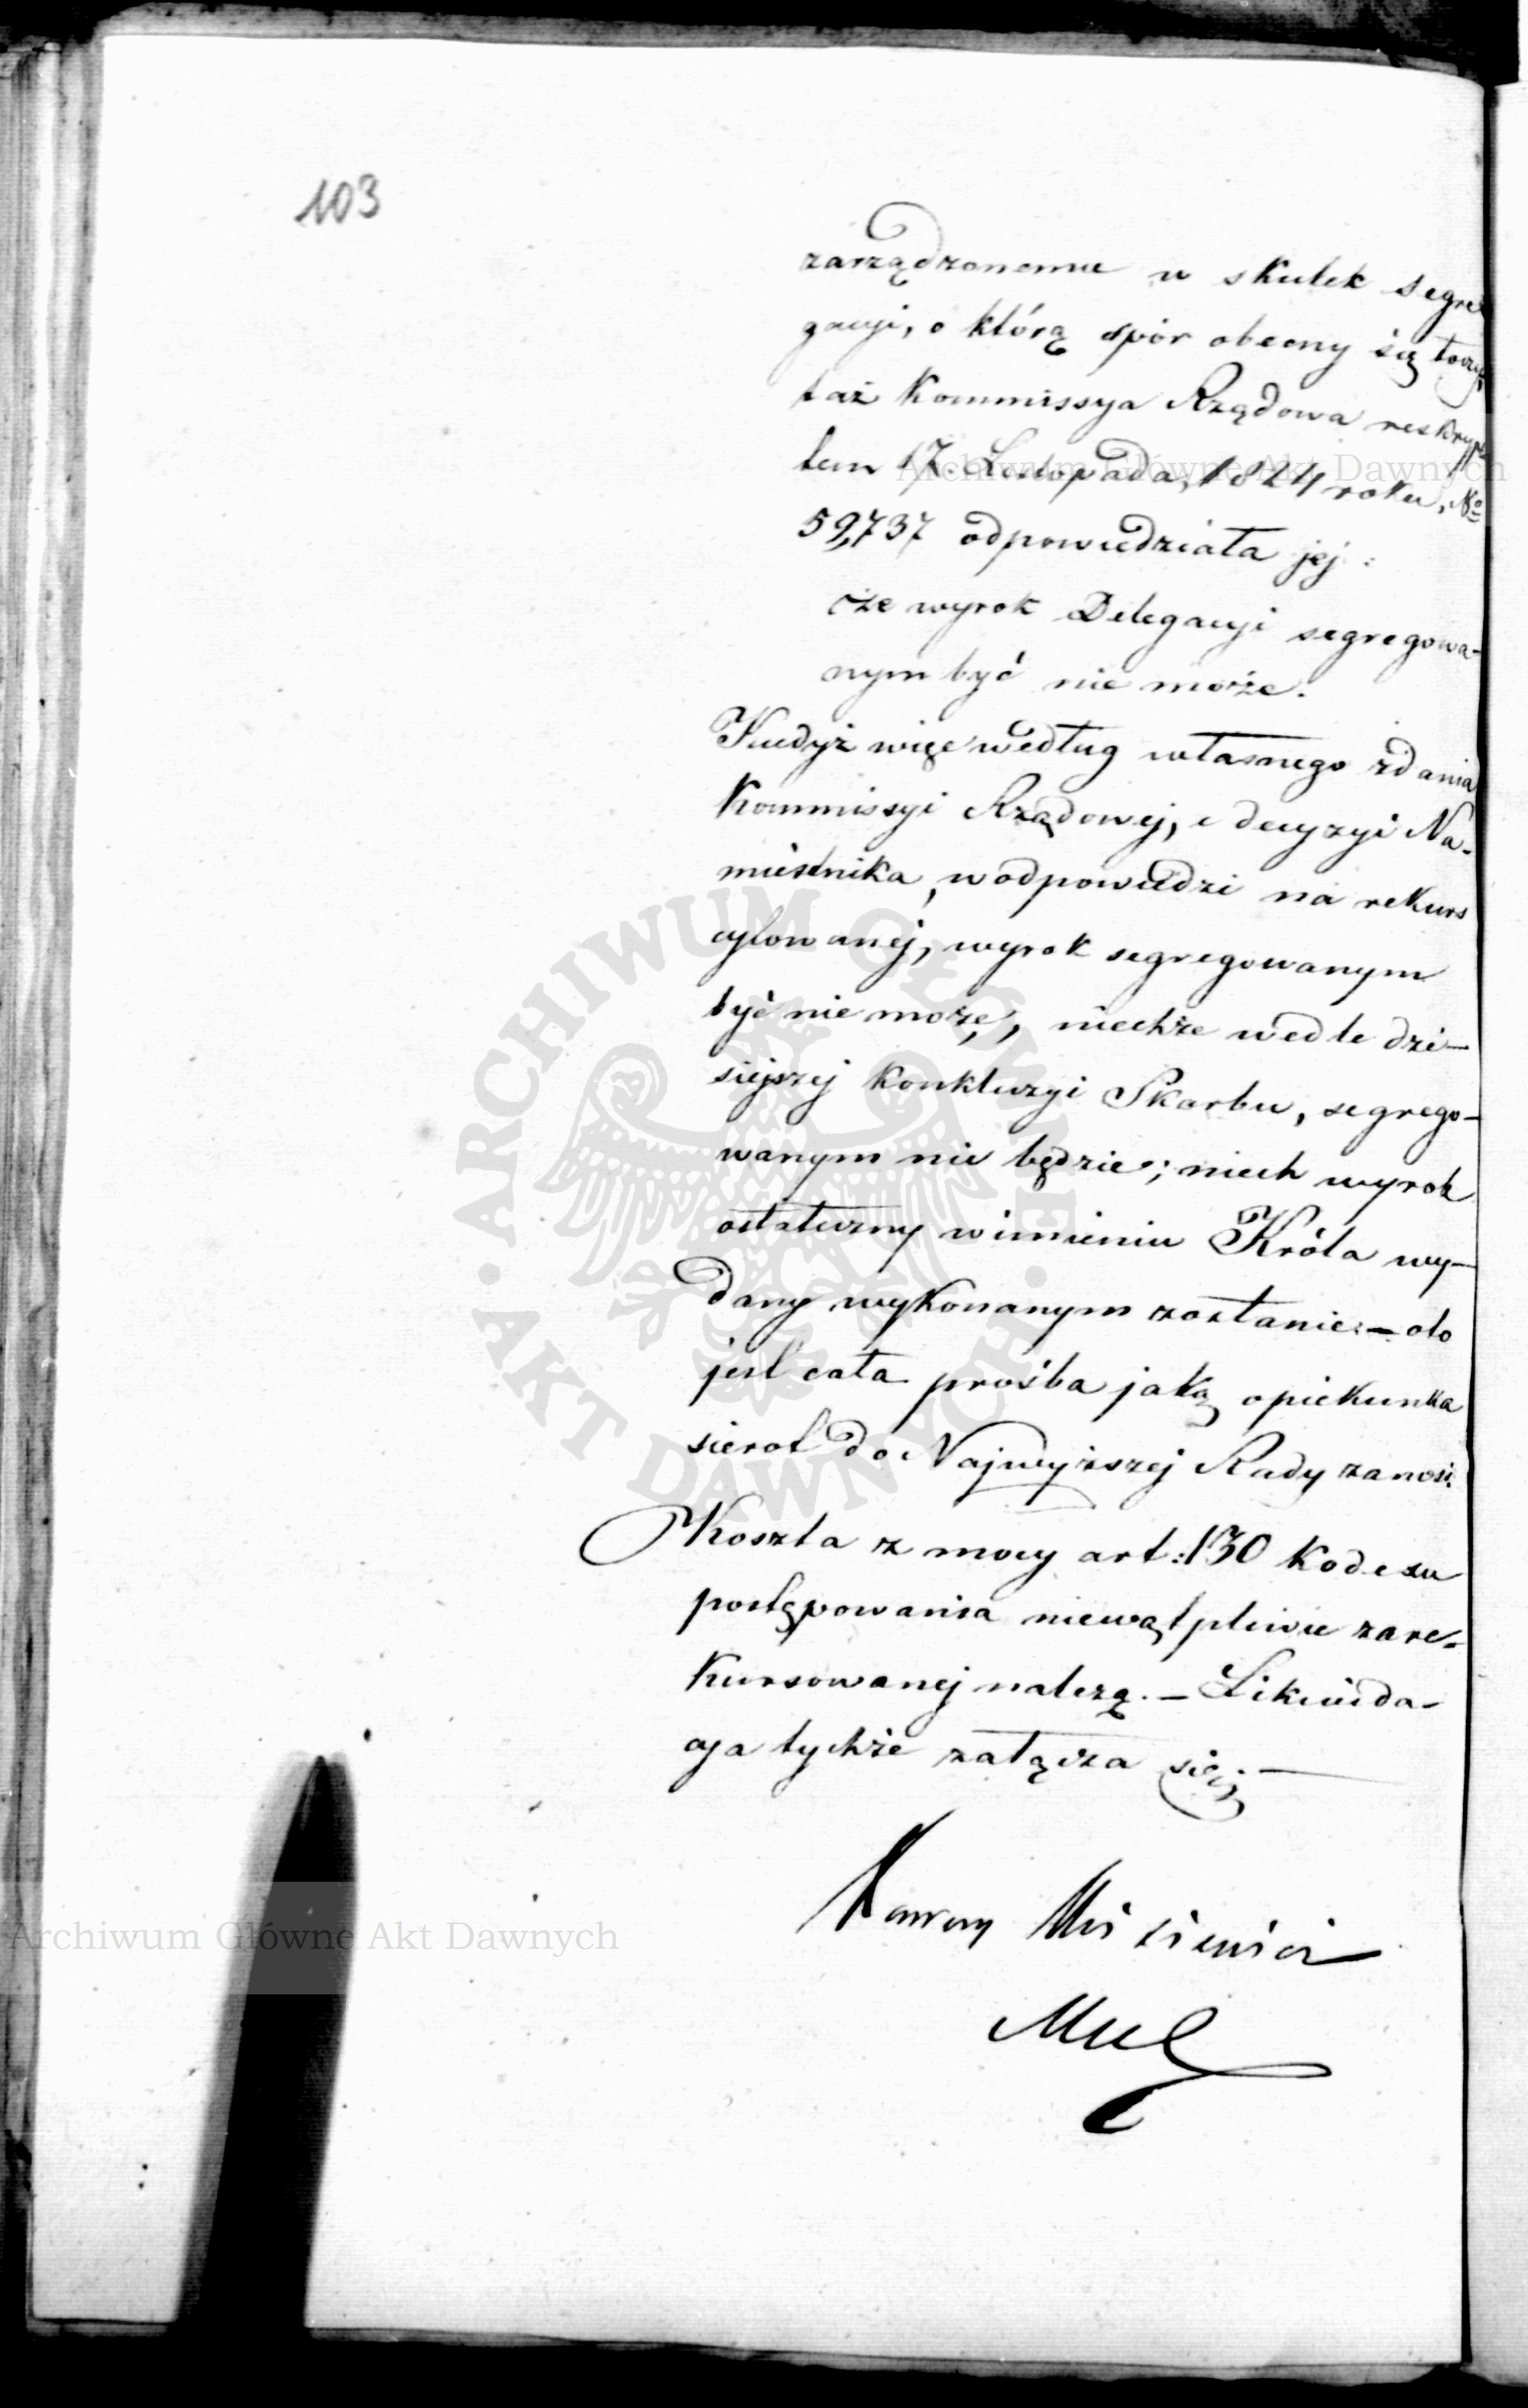 103
zarządzonemu w skutek segre
gacyi, o którą spór obecny się toczy,
taż Kommissya Rządowa reskryp
tem 17. Listopada, 1824 roku, No
59,737 odpowiedziała jej:
że wyrok Delegacyi segregowa-
nym być nie może.
Kiedyż więc według własnego zdania
Kommissyi Rządowej, i decyzyi Na-
miestnika, w odpowiedzi na rekurs
cytowanej, wyrok segregowanym
być nie może, niechże wedle dzi-
siejszej konkluzyi Skarbu, segrego-
wanym nie będzie; niech wyrok
ostateczny w imieniu Króla wy-
dany wykonanym zostanie: – oto
jest cała prośba jaką opiekunka
sierot do Najwyższej Rady zanosi.
Koszta z mocy art: 130 Kodexu
postępowania niewątpliwie zare-
kursowanej należą. – Likwida-
cya tychże załącza się; –
Archiwum Główne Akt Dawnych
Archiwum Główne Akt Dawnych
ARCHIWUM GŁÓWNE AKT DAWNYCH